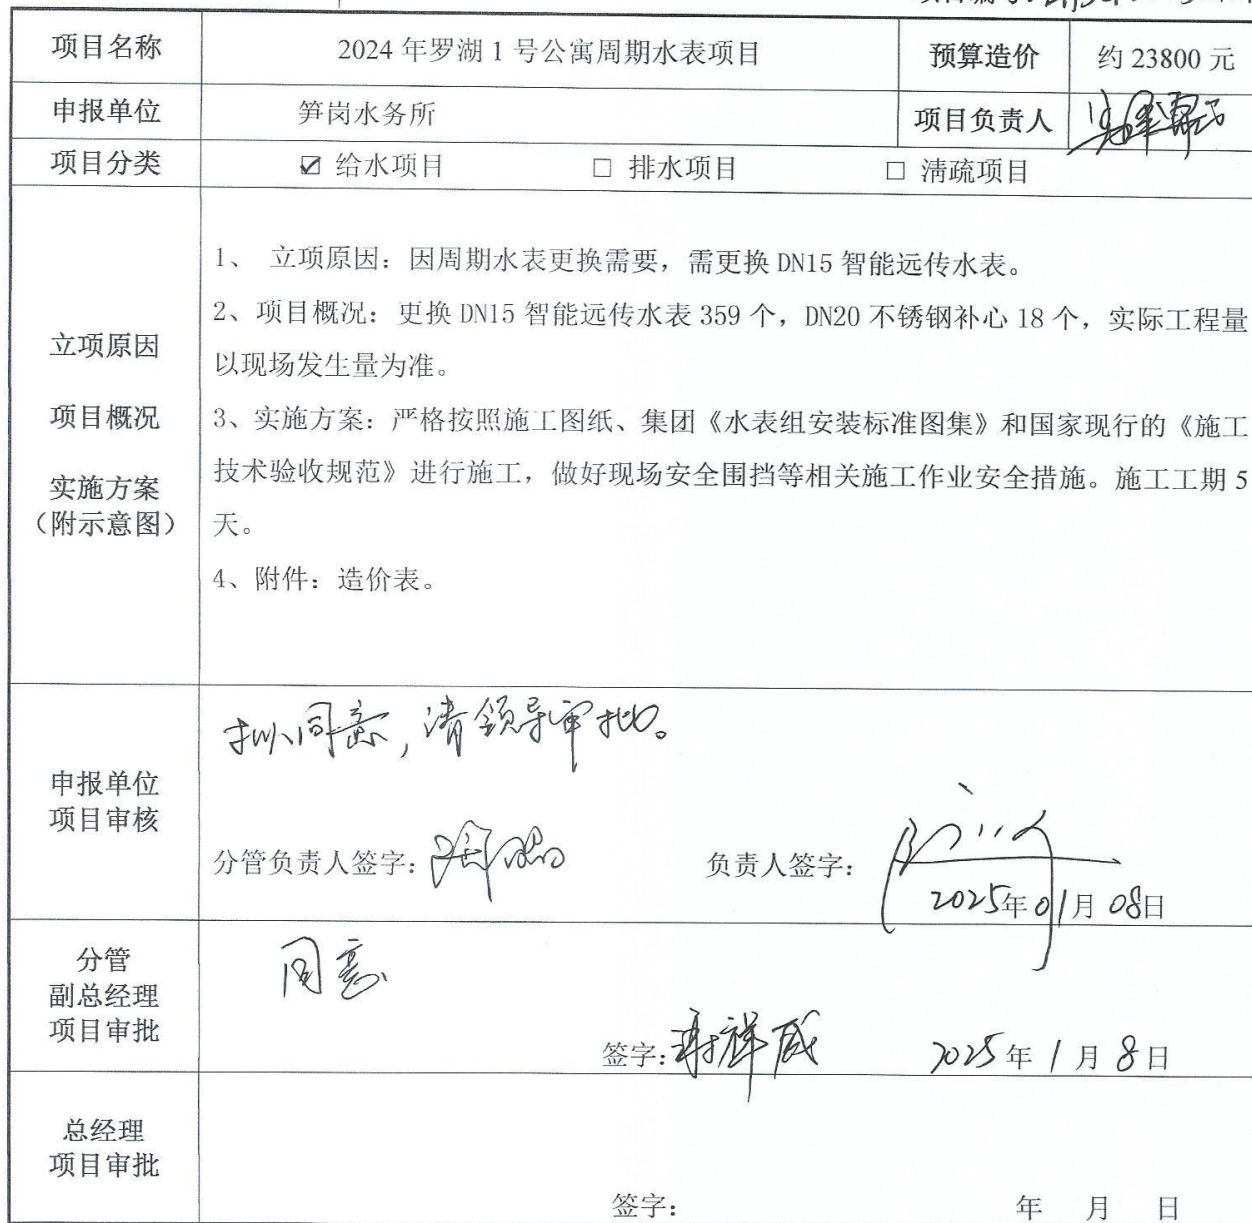 项目名称 2024年罗湖1号公寓周期水表项目 预算造价 约23800元
申报单位 笋岗水务所 项目负责人
项目分类 ☑ 给水项目 □ 排水项目 □ 清疏项目
1、 立项原因：因周期水表更换需要，需更换DN15智能远传水表。
2、项目概况：更换DN15智能远传水表359个，DN20不锈钢补心18个，实际工程量
以现场发生量为准。
3、实施方案：严格按照施工图纸、集团《水表组安装标准图集》和国家现行的《施工
技术验收规范》进行施工，做好现场安全围挡等相关施工作业安全措施。施工工期5
天。
4、附件：造价表。
立项原因
项目概况
实施方案
（附示意图）
拟同意，请领导审批。
申报单位
项目审核
分管负责人签字： 负责人签字：
2025年01月08日
分管
副总经理
项目审批
同意
签字：谢祥威 2025年1月8日
总经理
项目审批
签字： 年 月 日